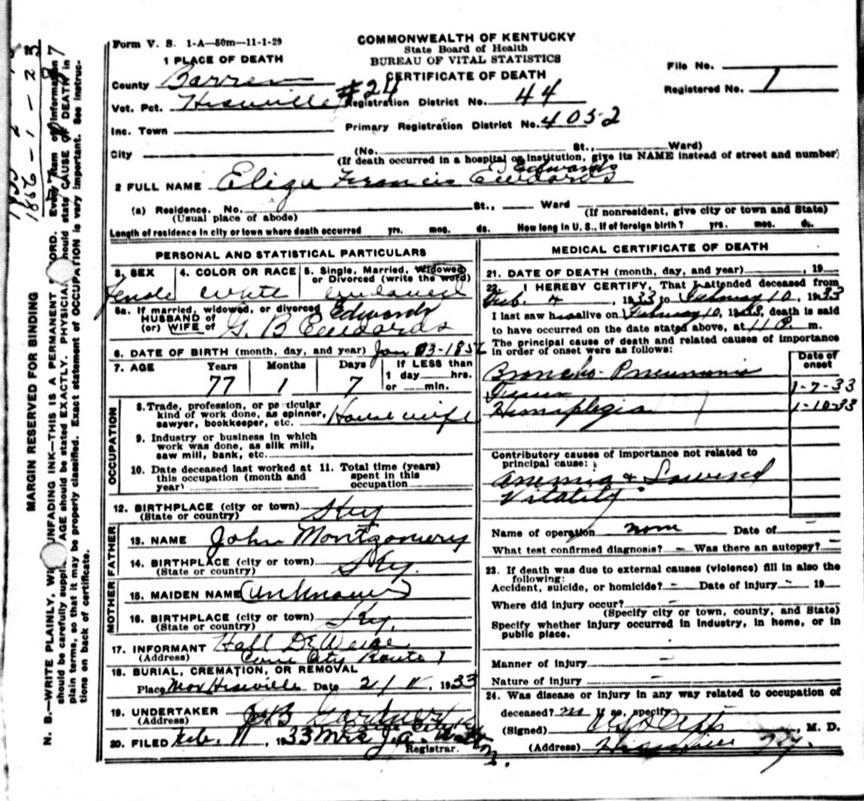 Form V. S. 1-A—50m—11-1-29
COMMONWEALTH OF KENTUCKY
State Board of Health
BUREAU OF VITAL STATISTICS
CERTIFICATE OF DEATH
File No.
Registered No. 1
1 PLACE OF DEATH
County Barren
Vot. Pct. Hiseville #24 Registration District No. 44
Inc. Town Primary Registration District No. 4052
City (No. St., Ward)
(If death occurred in a hospital or institution, give its NAME instead of street and number)
Edwards
2 FULL NAME Eliza Francis Edwards
(a) Residence. No. St., Ward
(Usual place of abode) (If nonresident, give city or town and State)
Length of residence in city or town where death occurred yrs. mos. ds. How long in U. S., if of foreign birth? yrs. mos. ds.
PERSONAL AND STATISTICAL PARTICULARS
3. SEX 4. COLOR OR RACE 5. Single, Married, Widowed
or Divorced (write the word)
Female White Widowed
5a. If married, widowed, or divorced Edwards
HUSBAND of
(or) WIFE of G. B Edwards
6. DATE OF BIRTH (month, day, and year) Jan 03-1856
7. AGE Years Months Days If LESS than
1 day hrs.
or min.
77 1 7
OCCUPATION
8. Trade, profession, or particular
kind of work done, as spinner,
sawyer, bookkeeper, etc. House wife
9. Industry or business in which
work was done, as silk mill,
saw mill, bank, etc.
10. Date deceased last worked at
this occupation (month and
year)
11. Total time (years)
spent in this
occupation
12. BIRTHPLACE (city or town) Ky
(State or country)
FATHER
13. NAME John Montgomery
14. BIRTHPLACE (city or town) Ky.
(State or country)
MOTHER
15. MAIDEN NAME (unknown)
16. BIRTHPLACE (city or town) Ky.
(State or country)
17. INFORMANT Hall DeWeese
(Address) Cave City Route 1
18. BURIAL, CREMATION, OR REMOVAL
Place Hiseville Date 2/11, 1933
19. UNDERTAKER
(Address)
20. FILED Feb. 11, 1933 Mrs J. A.
Registrar.
MEDICAL CERTIFICATE OF DEATH
21. DATE OF DEATH (month, day, and year) , 19
22. I HEREBY CERTIFY, That I attended deceased from
Feb. 4, 1933 to February 10, 1933
I last saw h alive on February 10, 1933, death is said
to have occurred on the date stated above, at 11 P. m.
The principal cause of death and related causes of importance
in order of onset were as follows:
Date of
onset
Broncho-Pneumonia
1-7-33
Hemaplegia 1-10-33
Contributory causes of importance not related to
principal cause:
Anemia & Lowered
Vitality
Name of operation none Date of
What test confirmed diagnosis? - Was there an autopsy? -
23. If death was due to external causes (violence) fill in also the
following:
Accident, suicide, or homicide? - Date of injury - 19
Where did injury occur? -
(Specify city or town, county, and State)
Specify whether injury occurred in industry, in home, or in
public place.
Manner of injury -
Nature of injury -
24. Was disease or injury in any way related to occupation of
deceased? no If so, specify
(Signed) , M. D.
(Address) Hiseville Ky.
MARGIN RESERVED FOR BINDING
1856-1-23